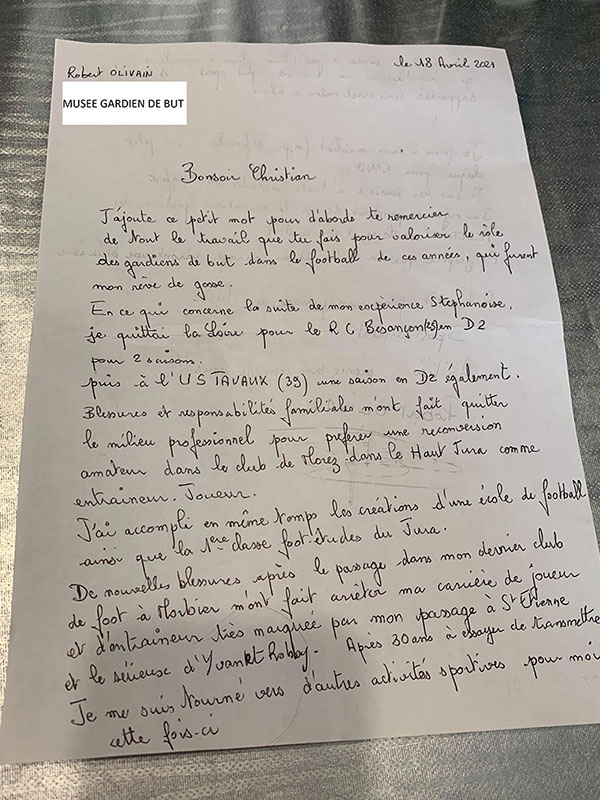 Robert OLIVAIN
le 18 Avril 2021
MUSEE GARDIEN DE BUT
Bonsoir Christian
J'ajoute ce petit mot pour d'abord te remercier
de tout le travail que tu fais pour valoriser le rôle
des gardiens de but dans le football de ces années, qui furent
mon rêve de gosse.
En ce qui concerne la suite de mon expérience Stéphanoise,
je quittai la Loire pour le R C Besançon (25) en D2
pour 2 saisons.
puis à l'U S TAVAUX (39) une saison en D2 également.
Blessures et responsabilités familiales m'ont fait quitter
le milieu professionnel pour préférer une reconversion
amateur dans le club de Morez dans le Haut Jura comme
entraineur. Joueur.
J'ai accompli en même temps les créations d'une école de football
ainsi que la 1ère classe foot-études du Jura.
De nouvelles blessures après le passage dans mon dernier club
de foot à Morbier m'ont fait arrêter ma carrière de joueur
et d'entraineur très marquée par mon passage à St Etienne
et le sérieux d'Yvan et Robby. Après 30 ans à essayer de transmettre
Je me suis tourné vers d'autres activités sportives pour moi
cette fois-ci